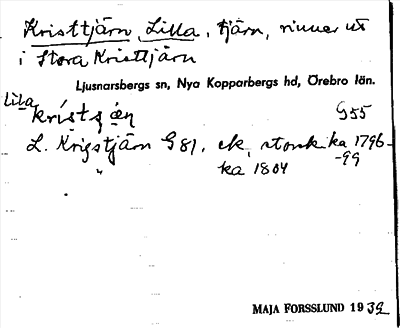 Kristtjärn, Lilla, tjärn, rinner ut
i Stora Kristtjärn
Ljusnarsbergs sn, Nya Kopparbergs hd, Örebro län.
lila
G55
L. Krigstjärn G 81, ek. storskska 1796-
-99
" ka 1804
MAJA FORSSLUND 1939